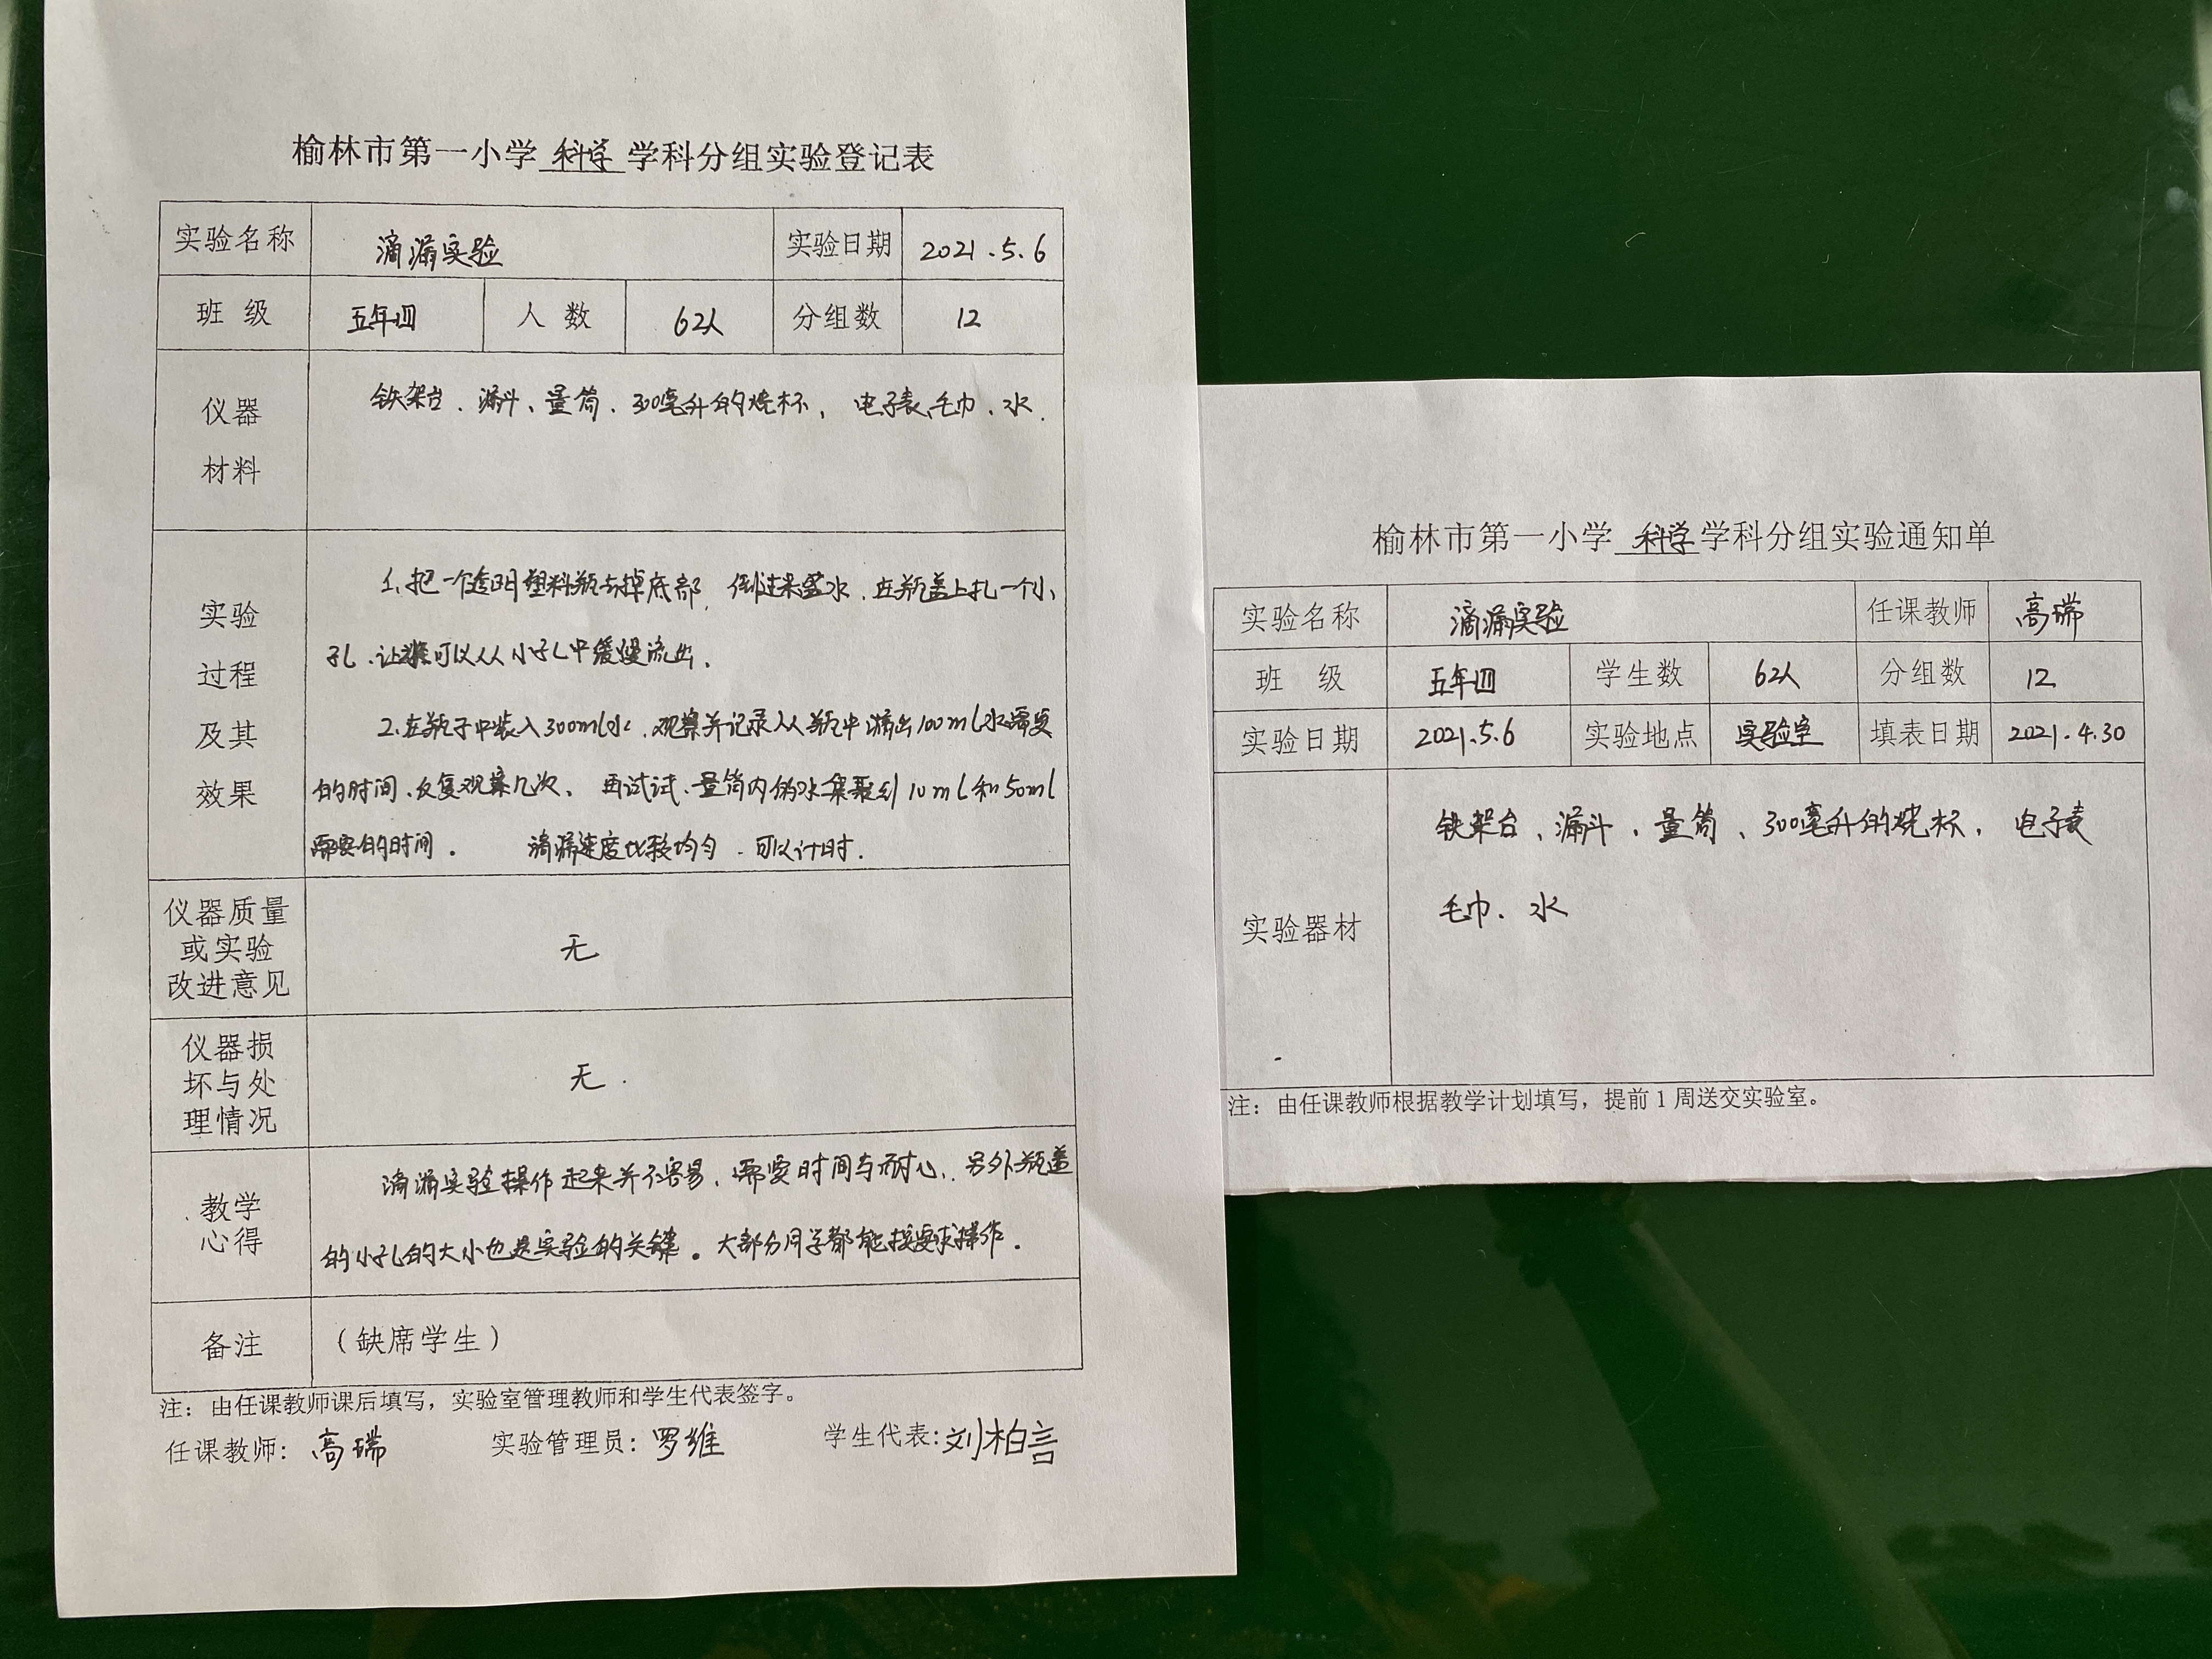 榆林市第一小学 科学 学科分组实验登记表
实验名称 滴漏实验 实验日期 2021.5.6
班 级 五年四 人 数 62人 分组数 12
仪器
材料
铁架台、漏斗、量筒、300毫升的烧杯，电子表、毛巾、水.
实验
过程
及其
效果
1、把一个透明塑料瓶去掉底部，倒过来盛水，在瓶盖上扎一个小
孔、让可以从小孔中缓慢流出。
2、在瓶子中装入300ml水，观察并记录从瓶中滴出100ml水需要
的时间、反复观察几次、再试试、量筒内的水集聚到10ml和50ml
需要的时间。 滴漏速度比较均匀、可以计时.
仪器质量
或实验
改进意见
无
仪器损
坏与处
理情况
无.
教学
心得
滴漏实验操作起来并不容易，需要时间与耐心，另外瓶盖
的小孔的大小也是实验的关键。大部分同学都能按要求操作.
备注 （缺席学生）
注：由任课教师课后填写，实验室管理教师和学生代表签字。
任课教师：高瑞 实验管理员：罗维 学生代表：刘柏言
榆林市第一小学 科学 学科分组实验通知单
实验名称 滴漏实验 任课教师 高瑞
班 级 五年四 学生数 62人 分组数 12
实验日期 2021.5.6 实验地点 实验室 填表日期 2021.4.30
实验器材
铁架台、漏斗、量筒、300毫升的烧杯，电子表
毛巾、水
注：由任课教师根据教学计划填写，提前1周送交实验室。